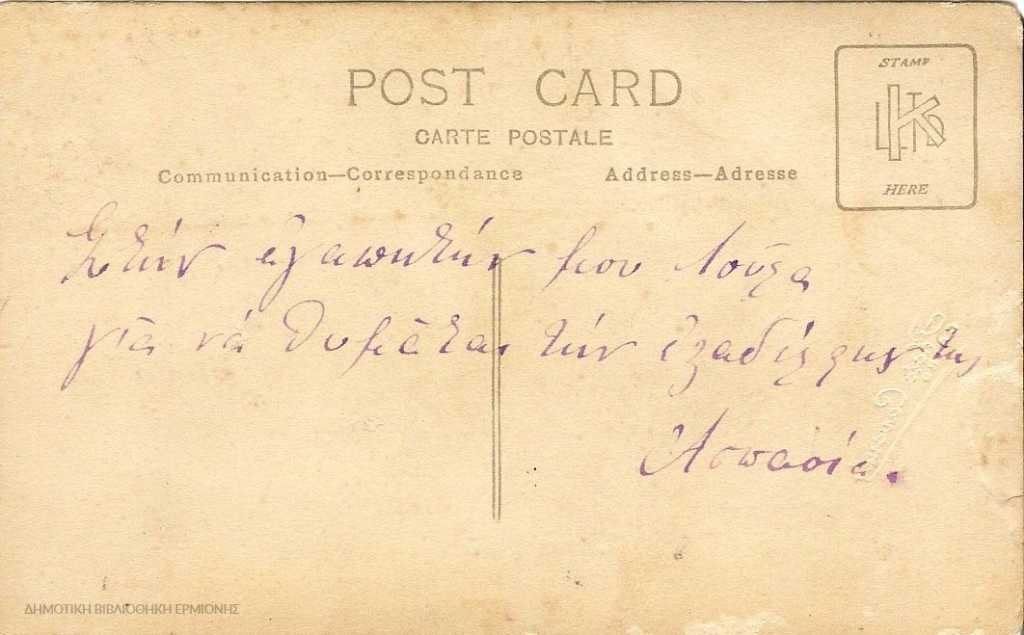 POST CARD
CARTE POSTALE
Communication—Correspondance
Address—Adresse
STAMP
HERE
Στήν ἀγαπητήν μου Λούλα
γιὰ νά θυμᾶται τήν ἐξαδέλφην της
Ἀσπασία.
ΔΗΜΟΤΙΚΗ ΒΙΒΛΙΟΘΗΚΗ ΕΡΜΙΟΝΗΣ